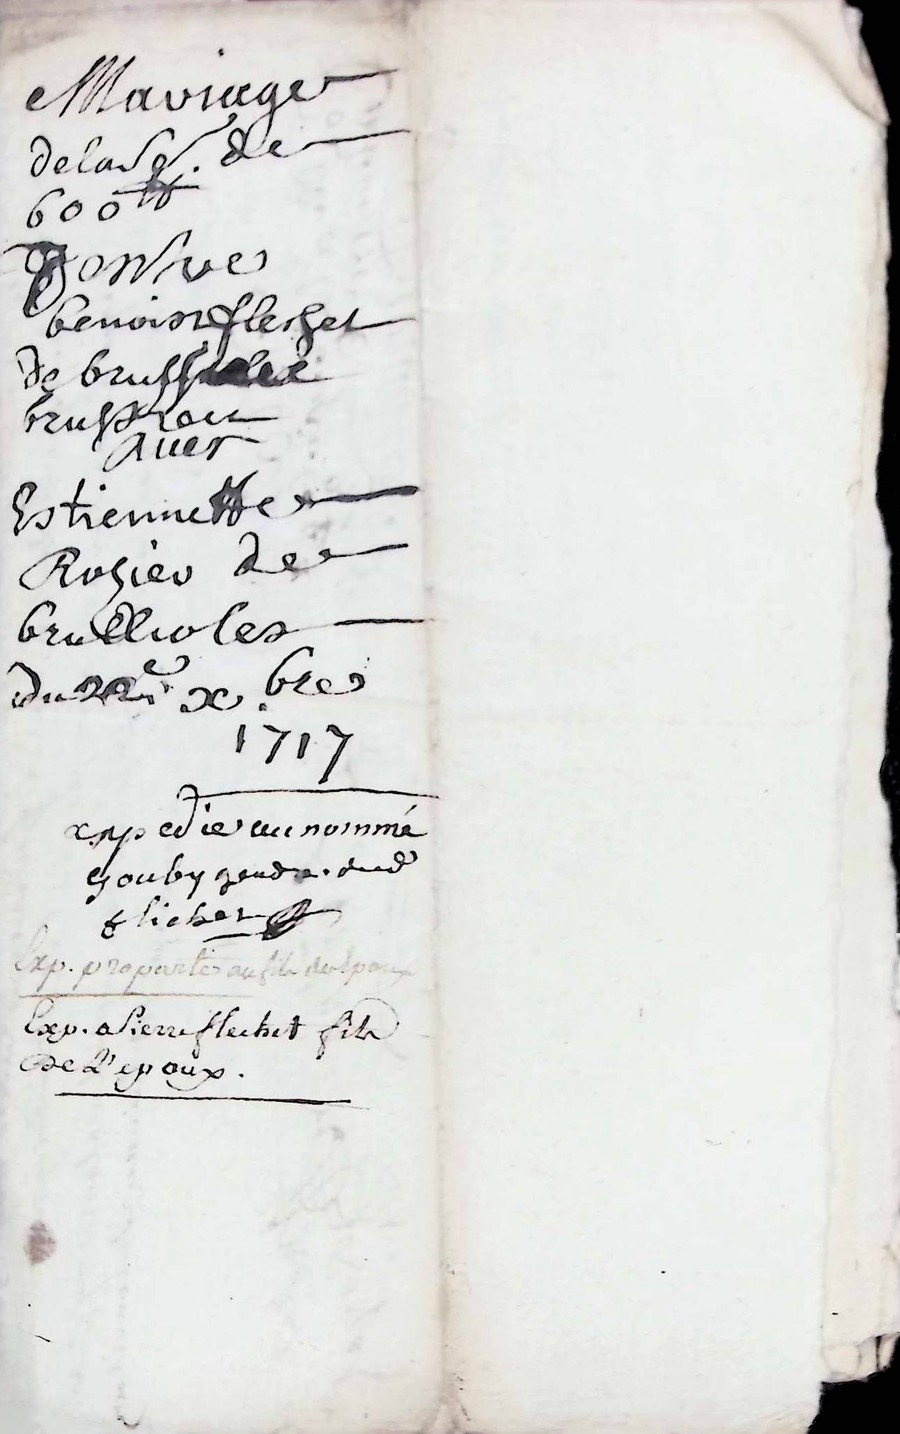 Mariage
de la so. de
600 tt
Entre
benoist flechet
de brussieu
Avec
Estiennette
Rozier de
brullioles
du 22e xbre
1717
expedié au nommé
gouby gendre dud
flichet
Exp. pro parte au fils de l'epoux
Exp. a Pierre flechet fils
de L'epoux.